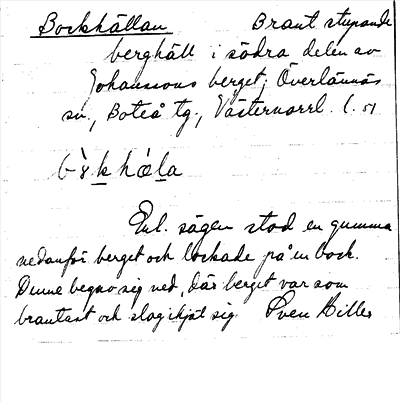 Bockhällan Brant stupande
berghäll i södra delen av
Johanssons berget, Överlännäs
sn., Boteå tg., Västernorrl. l. 51
Enl. sägen stod en gumma
nedanför berget och lockade på en bock.
Denne begav sig ned, där berget var som
brantast och slog ihjäl sig Sven Hiller